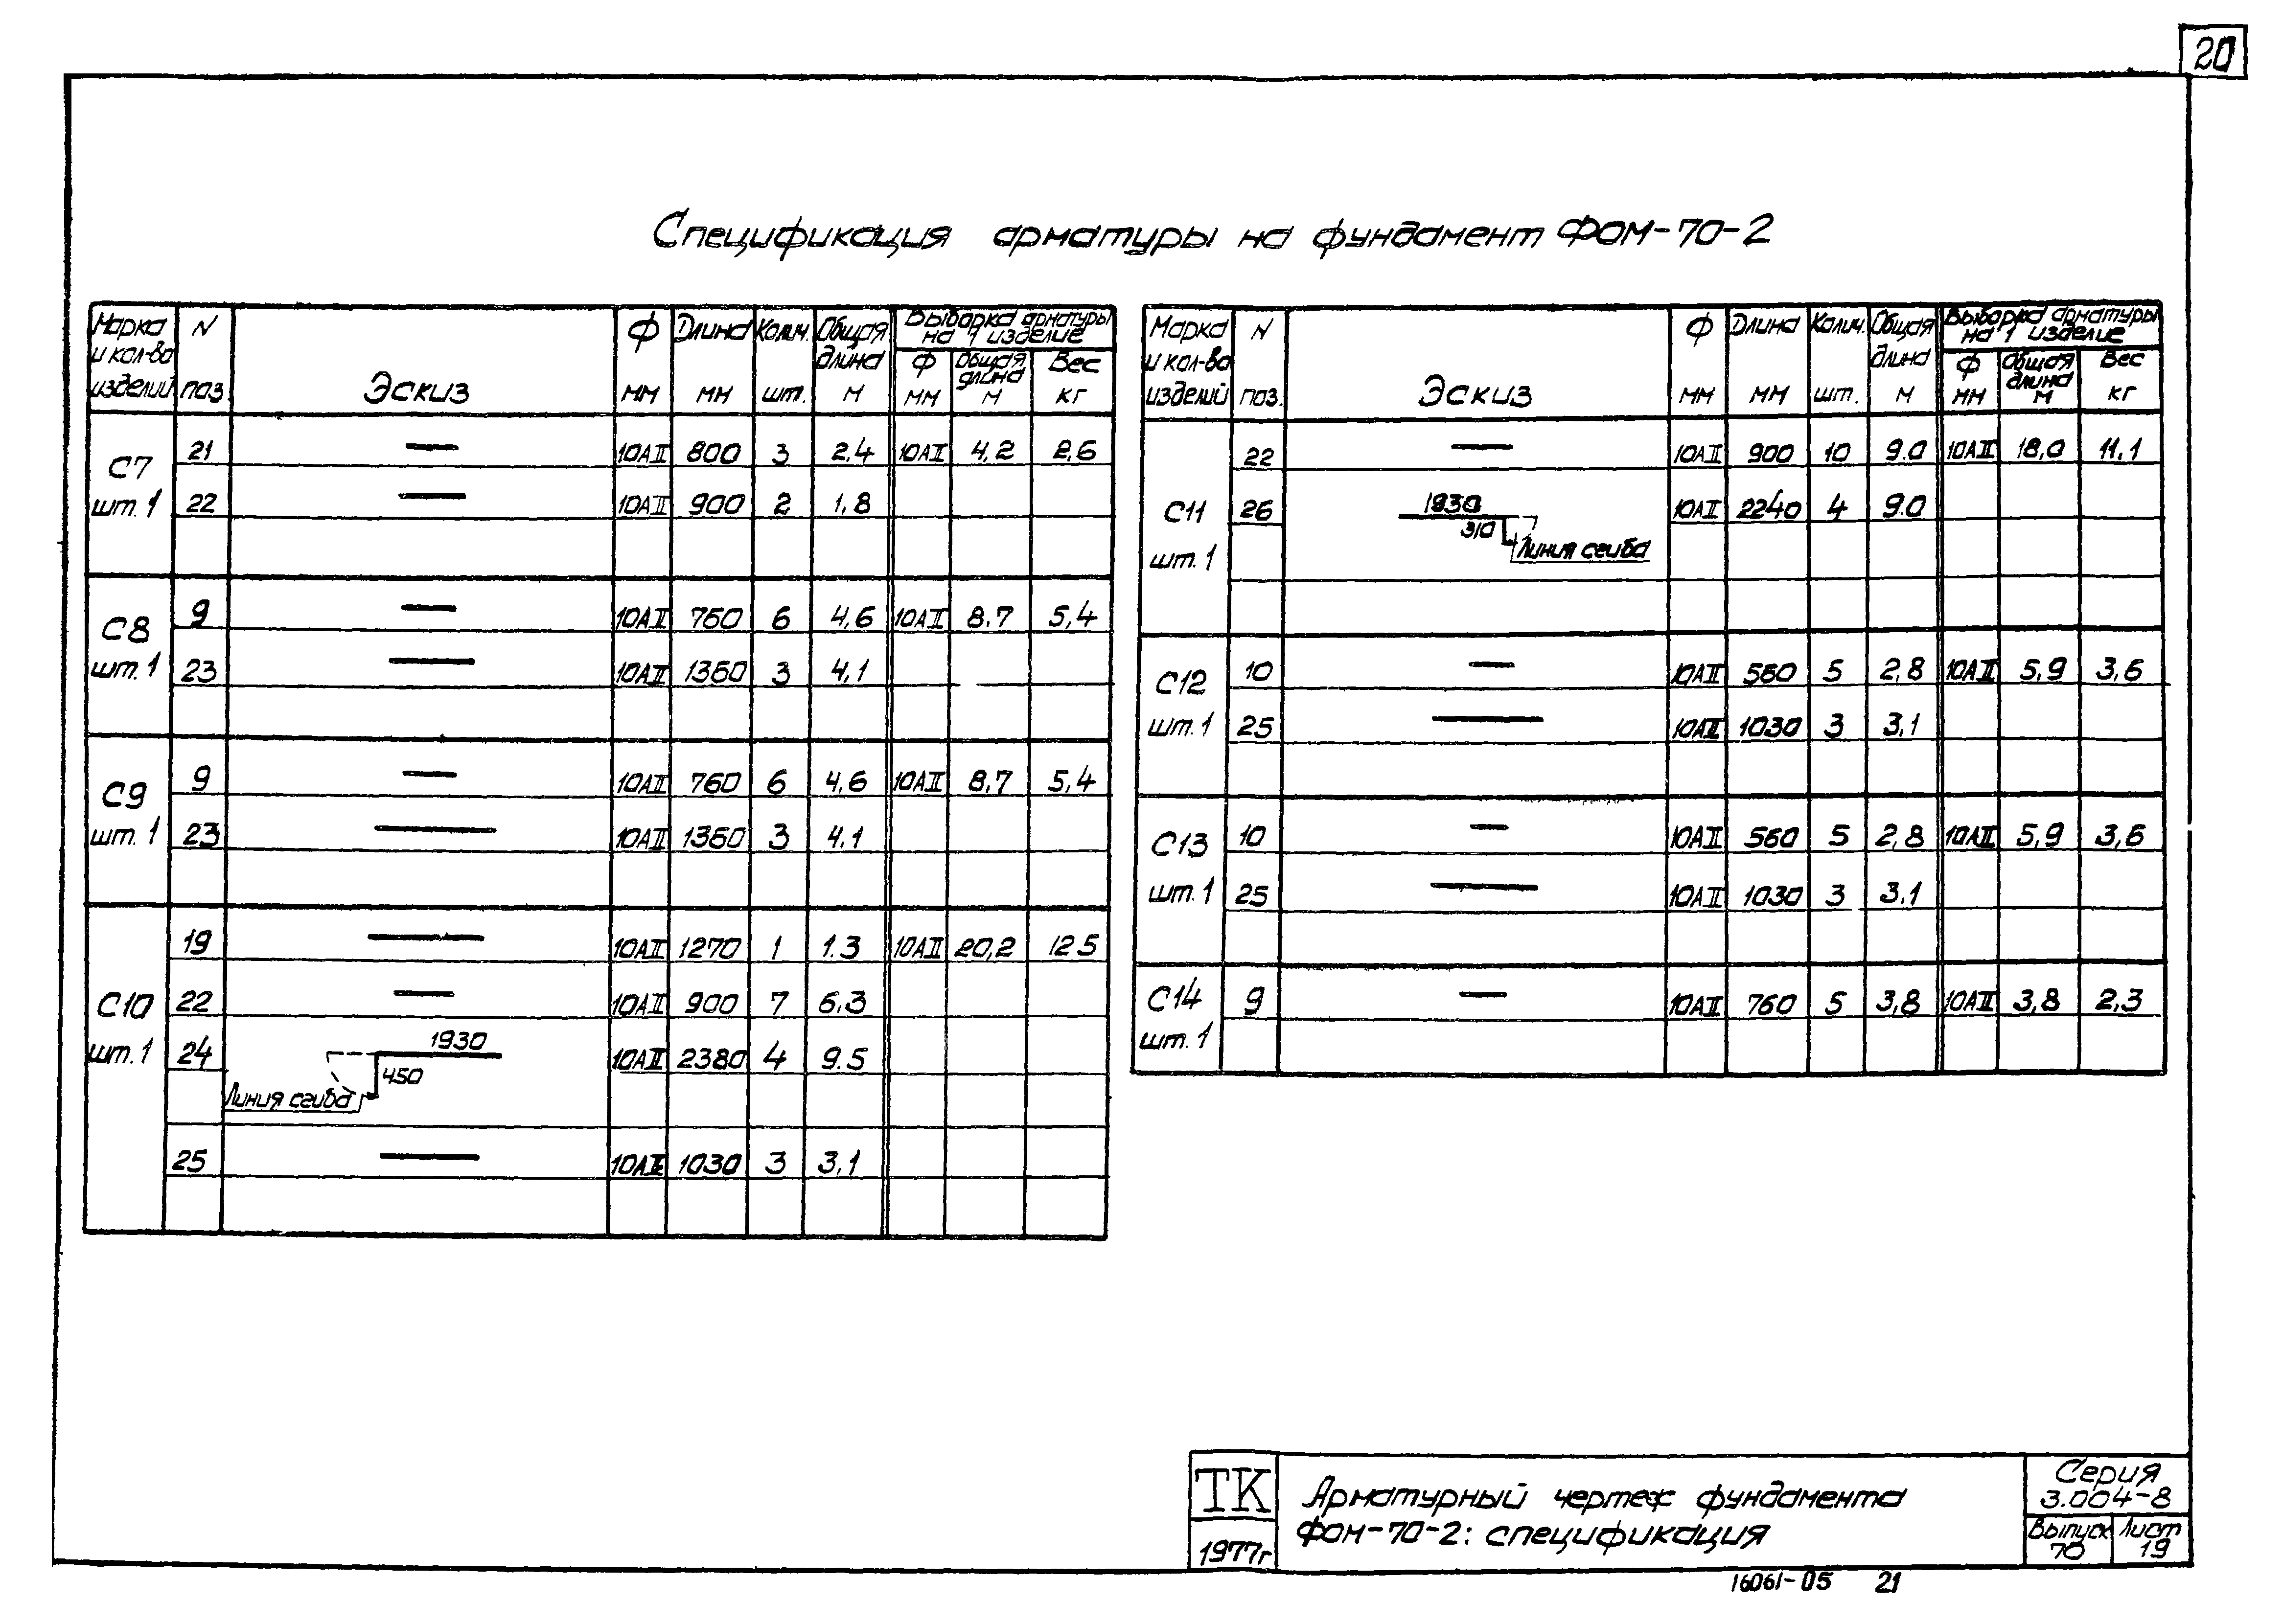 20
Спецификация арматуры на фундамент ФОМ-70-2
Марка и кол-во изделий N поз. Эскиз Ф мм Длина мм Колич. шт. Общая длина м Выборка арматуры на 1 изделие Ф мм Общая длина м Вес кг
С7 шт. 1 21 10АII 800 3 2,4 10АII 4,2 2,6
22 10АII 900 2 1,8
С8 шт. 1 9 10АII 760 6 4,6 10АII 8,7 5,4
23 10АII 1360 3 4,1
С9 шт. 1 9 10АII 760 6 4,6 10АII 8,7 5,4
23 10АII 1360 3 4,1
С10 шт. 1 19 10АII 1270 1 1.3 10АII 20,2 12.5
22 10АII 900 7 6,3
24 1930 450 Линия сгиба 10АII 2380 4 9.5
25 10АII 1030 3 3,1
Марка и кол-во изделий N поз. Эскиз Ф мм Длина мм Колич. шт. Общая длина м Выборка арматуры на 1 изделие Ф мм Общая длина м Вес кг
С11 шт. 1 22 10АII 900 10 9.0 10АII 18,0 11.1
26 1930 310 Линия сгиба 10АII 2240 4 9.0
С12 шт. 1 10 10АII 560 5 2,8 10АII 5,9 3,6
25 10АII 1030 3 3,1
С13 шт. 1 10 10АII 560 5 2,8 10АII 5,9 3,6
25 10АII 1030 3 3,1
С14 шт. 1 9 10АII 760 5 3,8 10АII 3,8 2,3
ТК
1977г
Арматурный чертеж фундамента
Фом-70-2: спецификация
Серия
3.004-8
Выпуск 70
Лист 19
16061-05 21